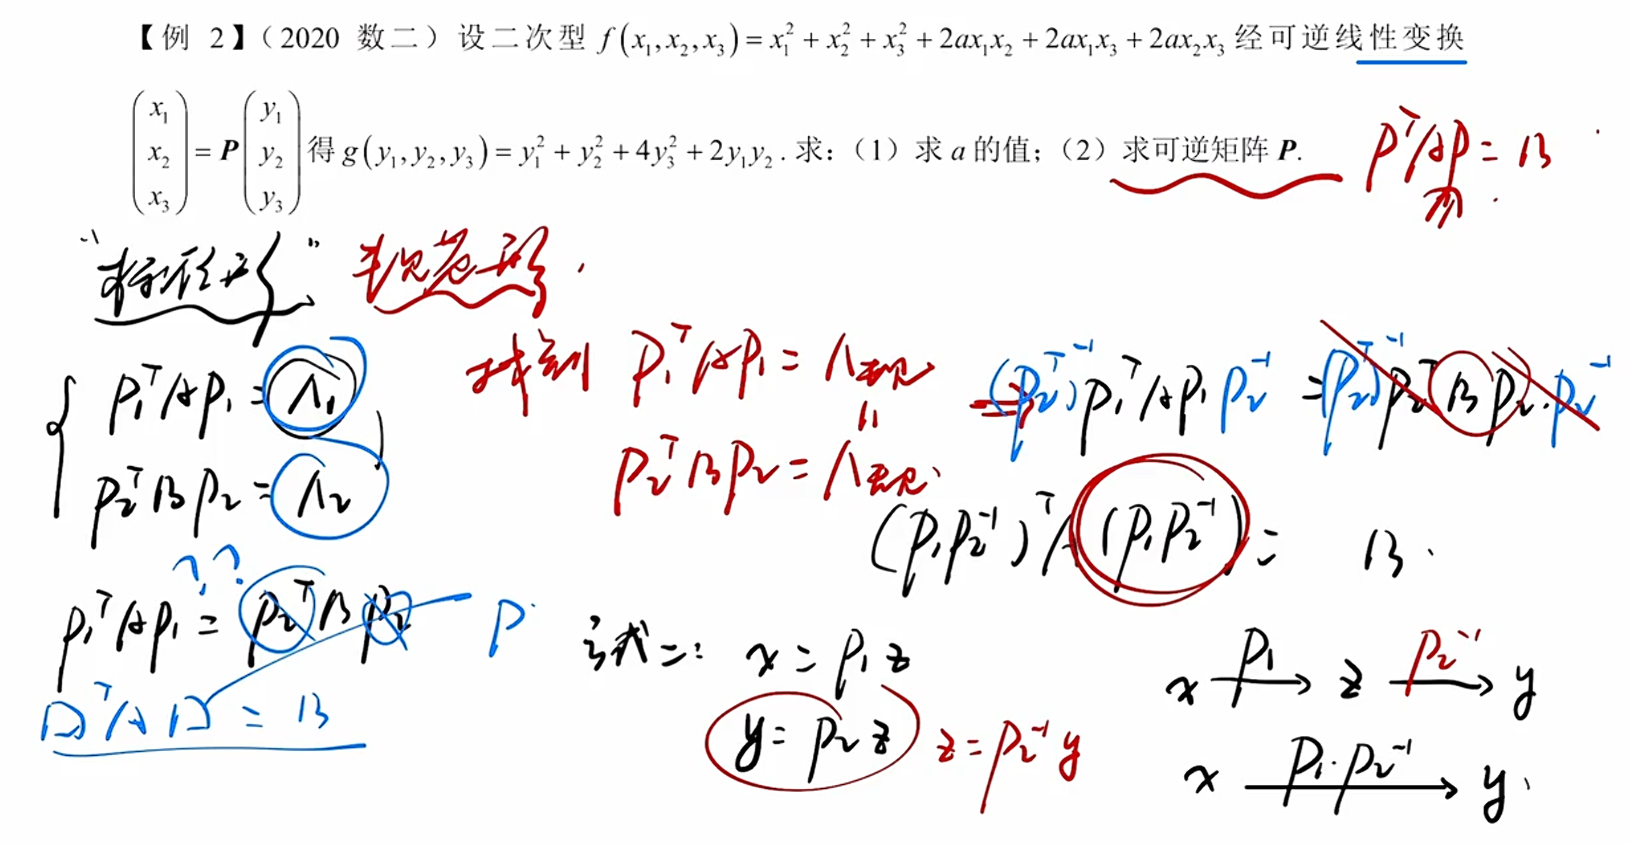 【例 2】（2020 数二）设二次型 f(x₁,x₂,x₃)=x₁²+x₂²+x₃²+2ax₁x₂+2ax₁x₃+2ax₂x₃ 经可逆线性变换
(x₁ x₂ x₃)=P(y₁ y₂ y₃) 得 g(y₁,y₂,y₃)=y₁²+y₂²+4y₃²+2y₁y₂. 求：（1）求 a 的值；（2）求可逆矩阵 P.
PᵀAP=B
“标准形” 规范形.
找到 P₁ᵀAP₁=Λ规
P₂ᵀBP₂=Λ规.
P₁ᵀAP₁=Λ₁
P₂ᵀBP₂=Λ₂
⇒(P₂ᵀ)⁻¹P₁ᵀAP₁P₂⁻¹=(P₂ᵀ)⁻¹P₂ᵀBP₂·P₂⁻¹
(P₁P₂⁻¹)ᵀA(P₁P₂⁻¹)=B.
??
P₁ᵀAP₁=P₂ᵀBP₂
P
□ᵀA□=B
法二: x=P₁z
y=P₂z z=P₂⁻¹y
x P₁→ z P₂⁻¹→ y
x P₁·P₂⁻¹→ y